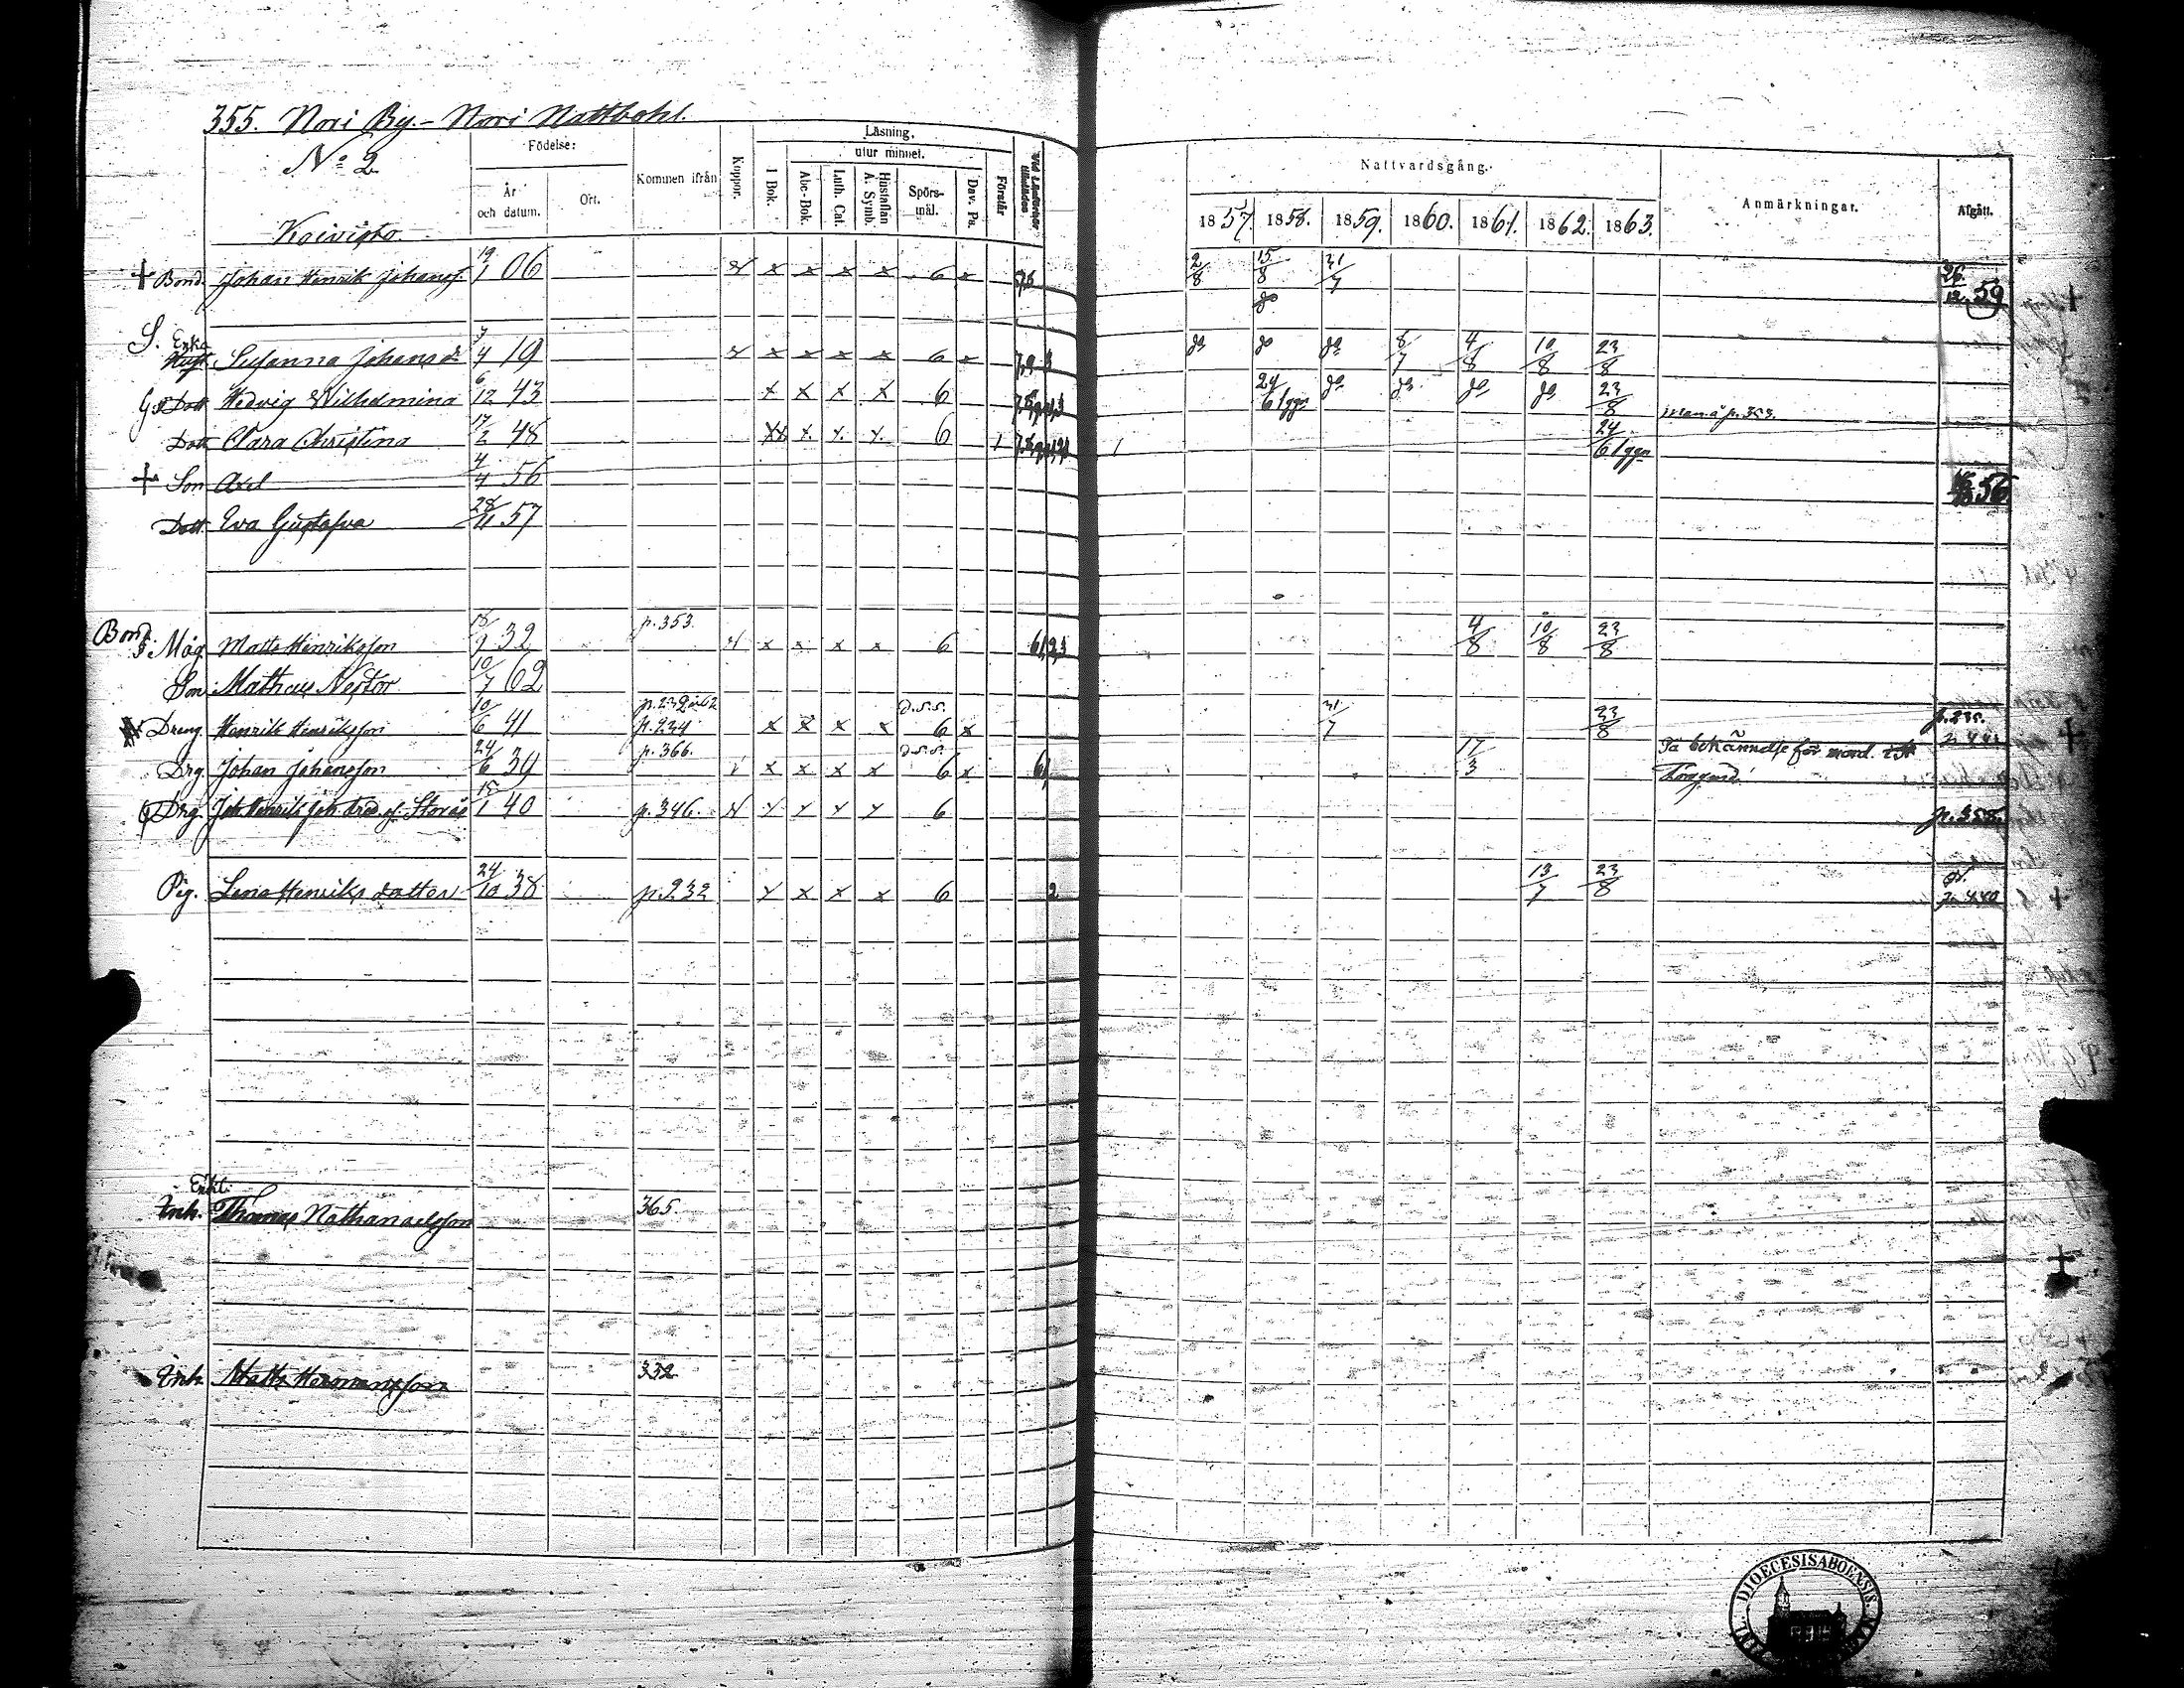 355. Nori By. - Nori Nattbohl.
No 2
Koivisto.
Födelse:
År och datum.
Ort.
Kommen ifrån
Koppor.
Läsning,
utur minnet.
I Bok.
Abc-Bok.
Luth. Cat.
Hustaflan A. Symb.
Spörsmål.
Dav. Ps.
Förstår
Nattvardsgång.
1857. 1858. 1859. 1860. 1861. 1862. 1863.
Anmärkningar.
Afgått.
+ Bond. Johan Henrik Johanss. 19/1 06 x x x x 6 x 2/8 15/8 do 31/7 26/12 59
S. Enka Hust. Susanna Johansd. 7/4 19 x x x x 6 x do do do 8/7 4/8 10/8 23/8
Dott Hedvig Wilhelmina 6/12 43 x x x x 6 24/6 1 ggn do do do do 23/8 p. 353.
Dott Clara Christina 17/2 48 x x x 6 1 1 24/6 1 ggn
+ Son Axel 4/4 56 56
Dott. Eva Gustafva 28/11 57
Bond. Måg Matts Henriksson 18/9 32 p. 353. x x x x 6 4/8 10/8 23/8
Son Mathias Nestor 10/7 62
Dreng Henrik Henriksson 10/6 41 p. 234 x x x x 6 x 31/7 23/8 p. 235.
Drg. Johan Johansson 24/6 39 p. 366. x x x x 6 x 61 17/3 På bekännelse för mord.
Drg. Joh. Henrik Joh. 15/1 40 p. 346. 6 p. 358.
Pig. Lena Henriks dotter 24/10 38 p. 232 x x x 6 2 13/7 23/8 p. 440
Enkl.
Inh. Thomas Nathanaelsson 365.
Inh. Matts Hermansson 332
DIOECESIS ABOENSIS